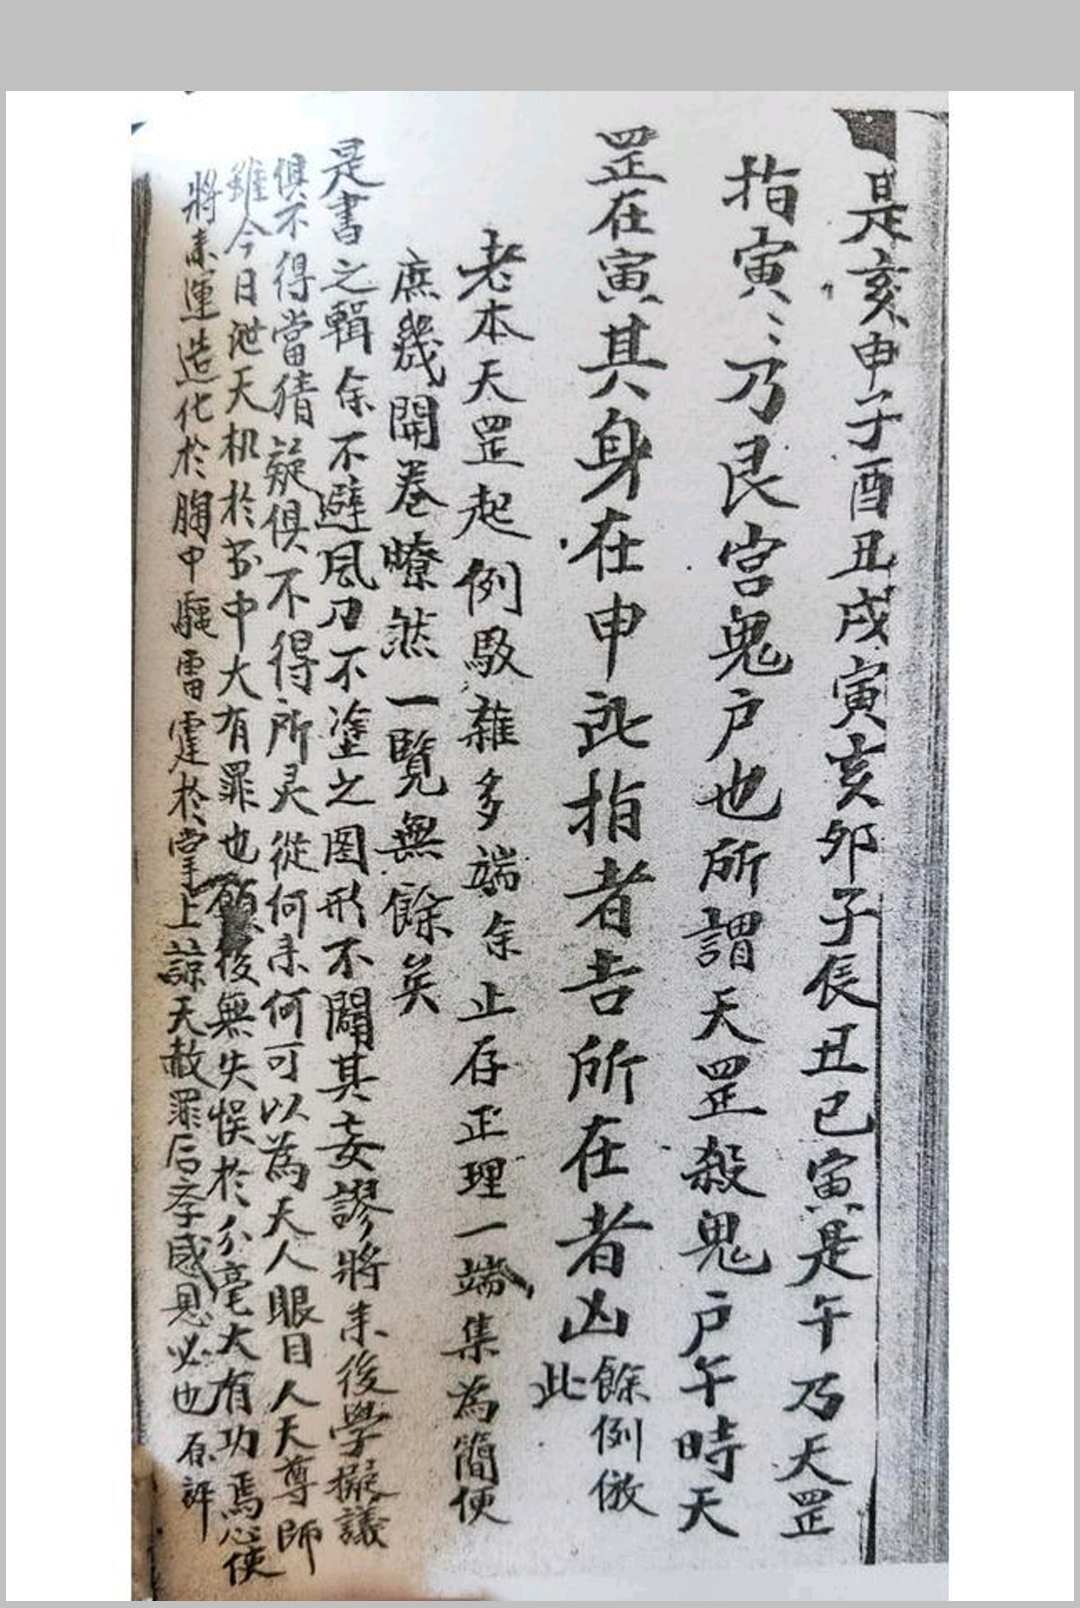 是亥申子酉丑戌寅亥卯子辰丑巳寅是午乃天罡
指寅〻乃艮宮鬼户也所謂天罡殺鬼户午時天
罡在寅其身在申所指者吉所在者凶餘例倣此
老本天罡起例駁雜多端余止存正理一端集為簡便
庶幾開卷瞭然一覽無餘矣
是書之輯余不避風刀不塗之图形不闢其妄謬將来後學擬議
俱不得當猜疑俱不得所灵從何来何可以為天人眼目人天尊師
雖今日泄天机於书中大有罪也願後無失悮於分毫大有功焉必使
將来運造化於胸中驅雷霆於掌上諒天赦罪后李感恩必也 原評